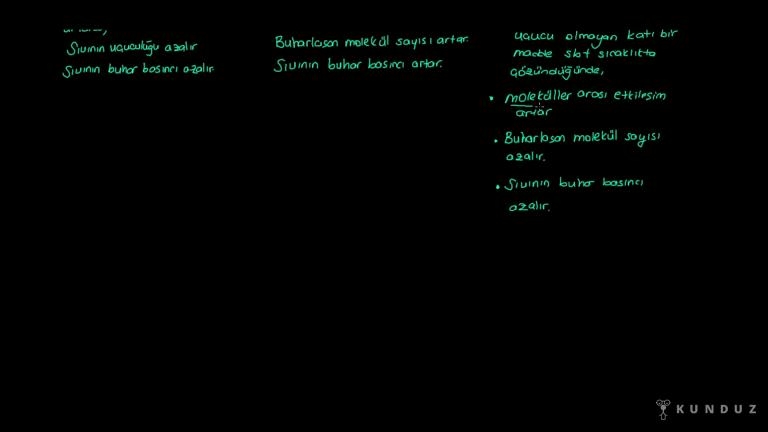 Sıvının uçuculuğu azalır
Sıvının buhar basıncı azalır
Buharlaşan molekül sayısı artar.
Sıvının buhar basıncı artar.
uçucu olmayan katı bir
madde sbt sıcaklıkta
çözündüğünde,
• moleküller arası etkileşim
artar
• Buharlaşan molekül sayısı
azalır.
• Sıvının buhar basıncı
azalır.
KUNDUZ